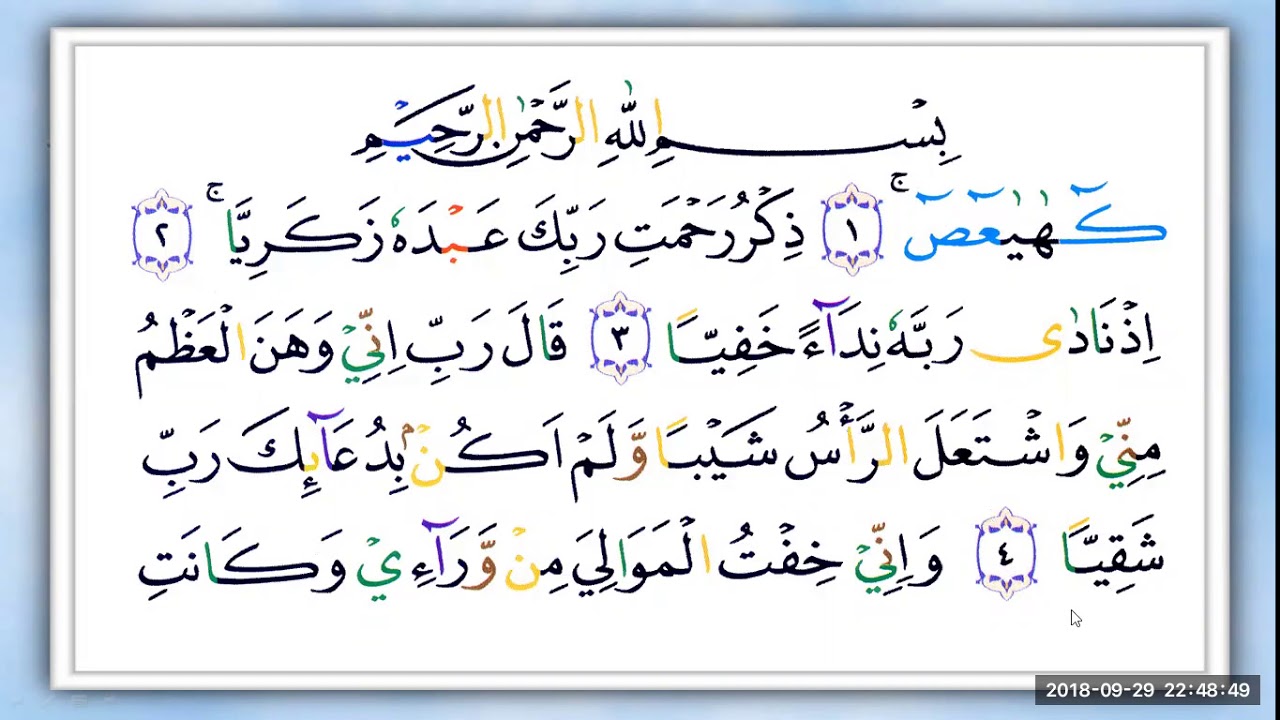 بِسْمِ اللّٰهِ الرَّحْمٰنِ الرَّحِيْمِ
كٓهٰيٰعٓصٓ ۚ ١ ذِكْرُ رَحْمَتِ رَبِّكَ عَبْدَهٗ زَكَرِيَّا ۚ ٢
اِذْ نَادٰى رَبَّهٗ نِدَآءً خَفِيًّا ٣ قَالَ رَبِّ اِنِّيْ وَهَنَ الْعَظْمُ
مِنِّيْ وَاشْتَعَلَ الرَّأْسُ شَيْبًا وَّلَمْ اَكُنْۢ بِدُعَآئِكَ رَبِّ
شَقِيًّا ٤ وَاِنِّيْ خِفْتُ الْمَوَالِيَ مِنْ وَّرَآءِيْ وَكَانَتِ
2018-09-29 22:48:49